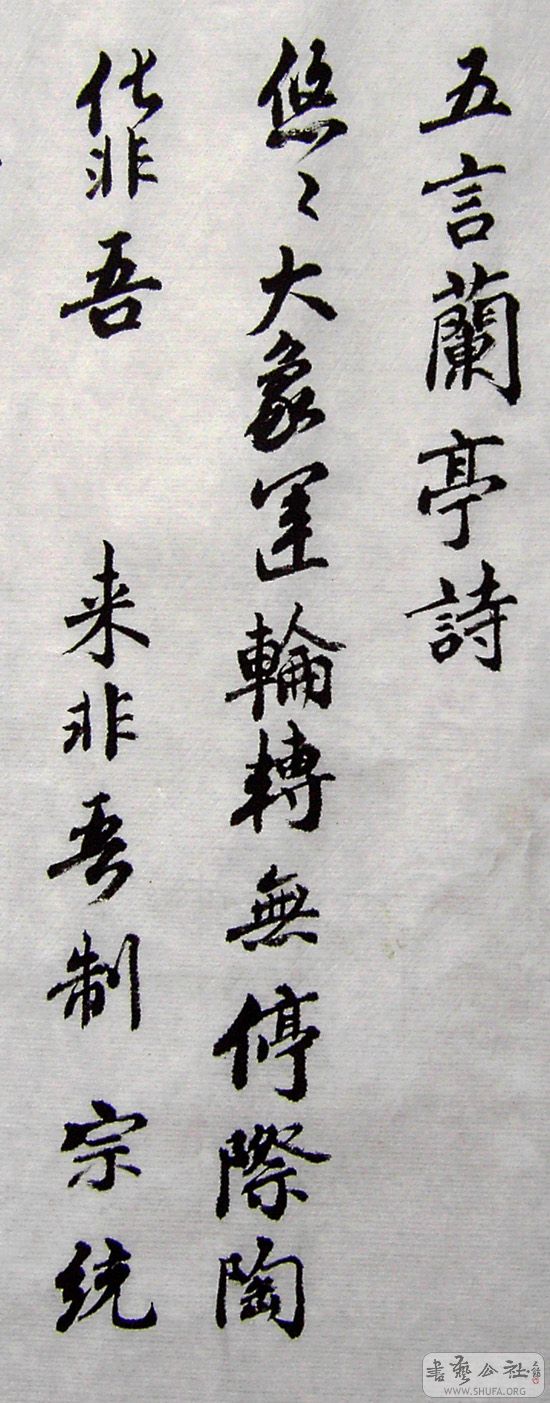 五言蘭亭詩
悠〻大象運輪轉無停際陶
化非吾 来非吾制宗統
書藝公社
WWW.SHUFA.ORG